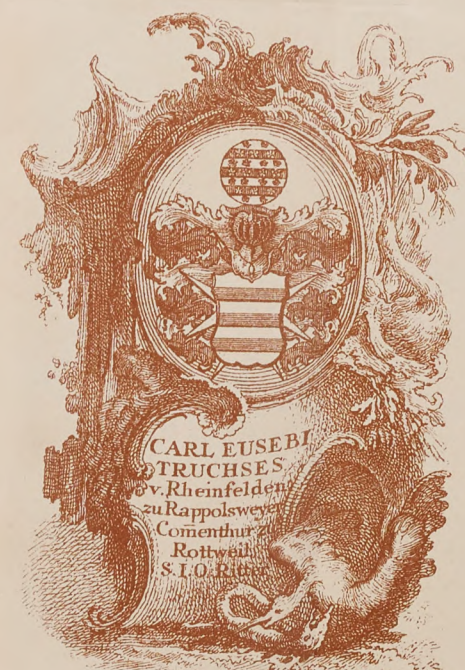 CARL EUSEBI
TRUCHSES
v. Rheinfelden
zu Rappolsweyer
Com̄enthur
Rottweil
S. I. O. Ritter